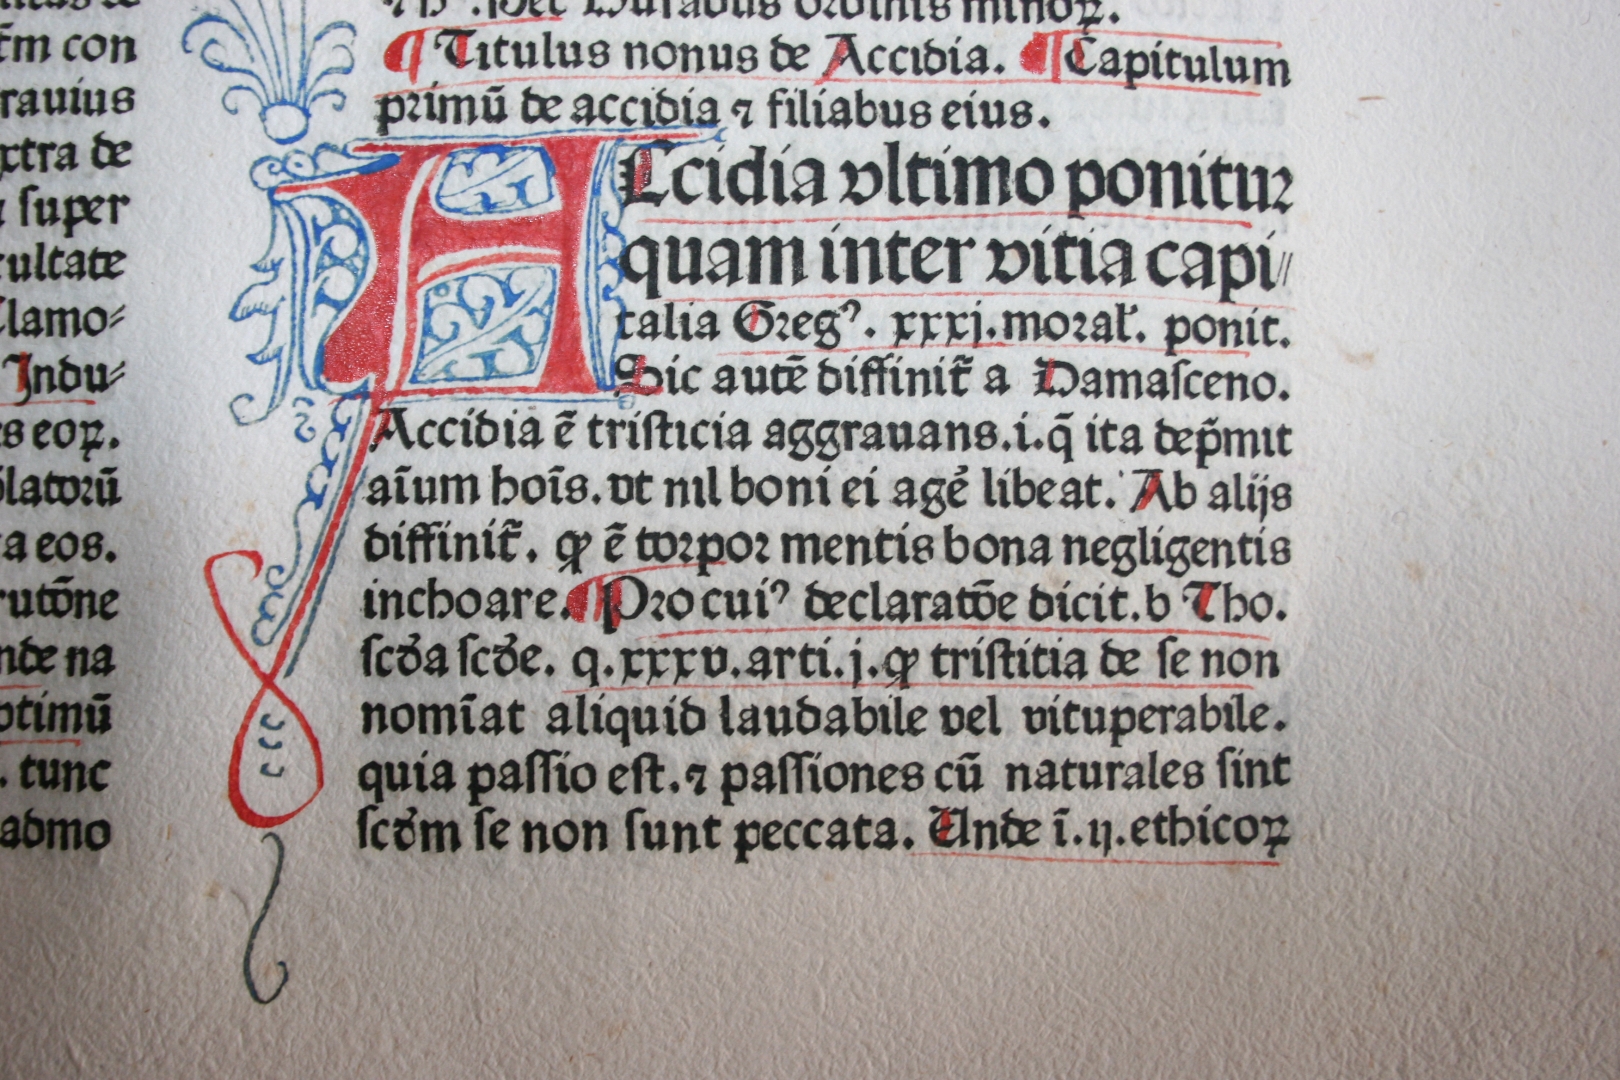 t̄m con
rauius
xtra de
super
cultate
Clamo⸗
Indu⸗
s eoꝝ.
latorū
a eos.
rutōne
nde na
ptimū
. tunc
admo
ordinis minoꝝ.
¶ Titulus nonus de Accidia. ¶ Capitulum
primū de accidia ⁊ filiabus eius.
ACcidia vltimo ponitur
quam inter vitia capi⸗
talia Gregꝰ. xxxj. moral̓. ponit.
Sic autē diffinit̃ a Damaſceno.
Accidia ē triſticia aggrauans .i. q̄ ita dep̄mit
aīum hoīs. vt nil boni ei age᷒ libeat. Ab alijs
diffinit̃. ꝙ ē torpor mentis bona negligentis
inchoare. ¶ Pro cuiꝰ declaratōe dicit. b Tho.
ſcd̓a ſcd̓e. q. xxxv. arti. j. ꝙ triſtitia de ſe non
nomīat aliquid laudabile vel vituperabile.
quia paſſio eſt. ⁊ paſſiones cū naturales ſint
ſcd̓m ſe non ſunt peccata. Unde ī .ij. ethicoꝝ